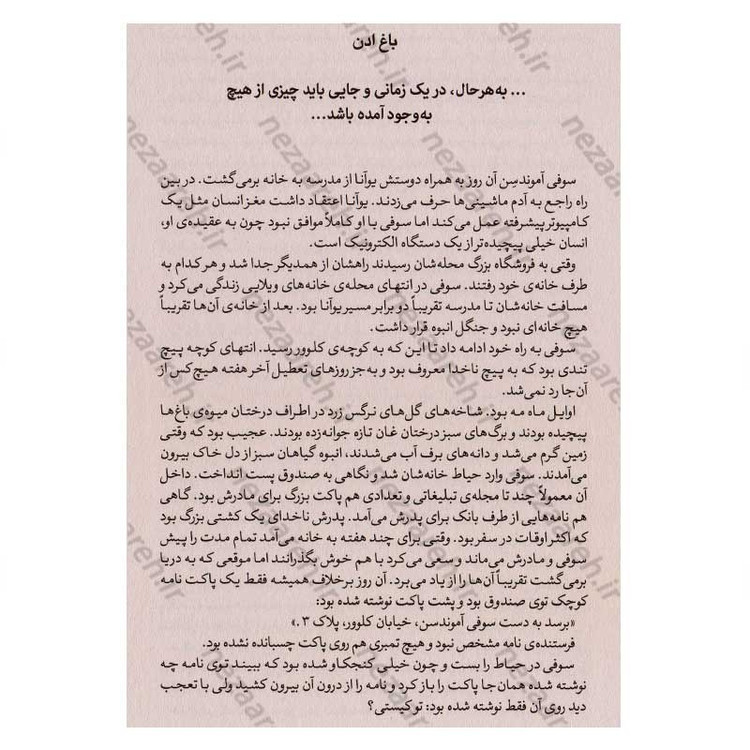 باغ ادن
... به‌هرحال، در یک زمانی و جایی باید چیزی از هیچ
به‌وجود آمده باشد...
سوفی آموندسِن آن روز به همراه دوستش یوآنا از مدرسه به خانه برمی‌گشت. در بین
راه راجع به آدم ماشینی‌ها حرف می‌زدند. یوآنا اعتقاد داشت مغز انسان مثل یک
کامپیوتر پیشرفته عمل می‌کند اما سوفی با او کاملاً موافق نبود چون به عقیده‌ی او،
انسان خیلی پیچیده‌تر از یک دستگاه الکترونیک است.
وقتی به فروشگاه بزرگ محله‌شان رسیدند راهشان از همدیگر جدا شد و هرکدام به
طرف خانه‌ی خود رفتند. سوفی در انتهای محله‌ی خانه‌های ویلایی زندگی می‌کرد و
مسافت خانه‌شان تا مدرسه تقریباً دو برابر مسیر یوآنا بود. بعد از خانه‌ی آن‌ها تقریباً
هیچ خانه‌ای نبود و جنگل انبوه قرار داشت.
سوفی به راه خود ادامه داد تا این که به کوچه‌ی کلوور رسید. انتهای کوچه پیچ
تندی بود که به پیچ ناخدا معروف بود و به‌جز روزهای تعطیل آخر هفته هیچ‌کس از
آن‌جا رد نمی‌شد.
اوایل ماه مه بود. شاخه‌های گل‌های نرگس زرد در اطراف درختان میوه‌ی باغ‌ها
پیچیده بودند و برگ‌های سبز درختان غان تازه جوانه‌زده بودند. عجیب بود که وقتی
زمین گرم می‌شد و دانه‌های برف آب می‌شدند، انبوه گیاهان سبز از دل خاک بیرون
می‌آمدند. سوفی وارد حیاط خانه‌شان شد و نگاهی به صندوق پست انداخت. داخل
آن معمولاً چند تا مجله‌ی تبلیغاتی و تعدادی هم پاکت بزرگ برای مادرش بود. گاهی
هم نامه‌هایی از طرف بانک برای پدرش می‌آمد. پدرش ناخدای یک کشتی بزرگ بود
که اکثر اوقات در سفر بود. وقتی برای چند هفته به خانه می‌آمد تمام مدت را پیش
سوفی و مادرش می‌ماند و سعی می‌کرد با هم خوش بگذرانند اما موقعی که به دریا
برمی‌گشت تقریباً آن‌ها را از یاد می‌برد. آن روز برخلاف همیشه فقط یک پاکت نامه
کوچک توی صندوق بود و پشت پاکت نوشته شده بود:
«برسد به دست سوفی آموندسن، خیابان کلوور، پلاک ۳.»
فرستنده‌ی نامه مشخص نبود و هیچ تمبری هم روی پاکت چسبانده نشده بود.
سوفی در حیاط را بست و چون خیلی کنجکاو شده بود که ببیند توی نامه چه
نوشته شده همان‌جا پاکت را باز کرد و نامه را از درون آن بیرون کشید ولی با تعجب
دید روی آن فقط نوشته شده بود: تو کیستی؟
nezaareh.ir